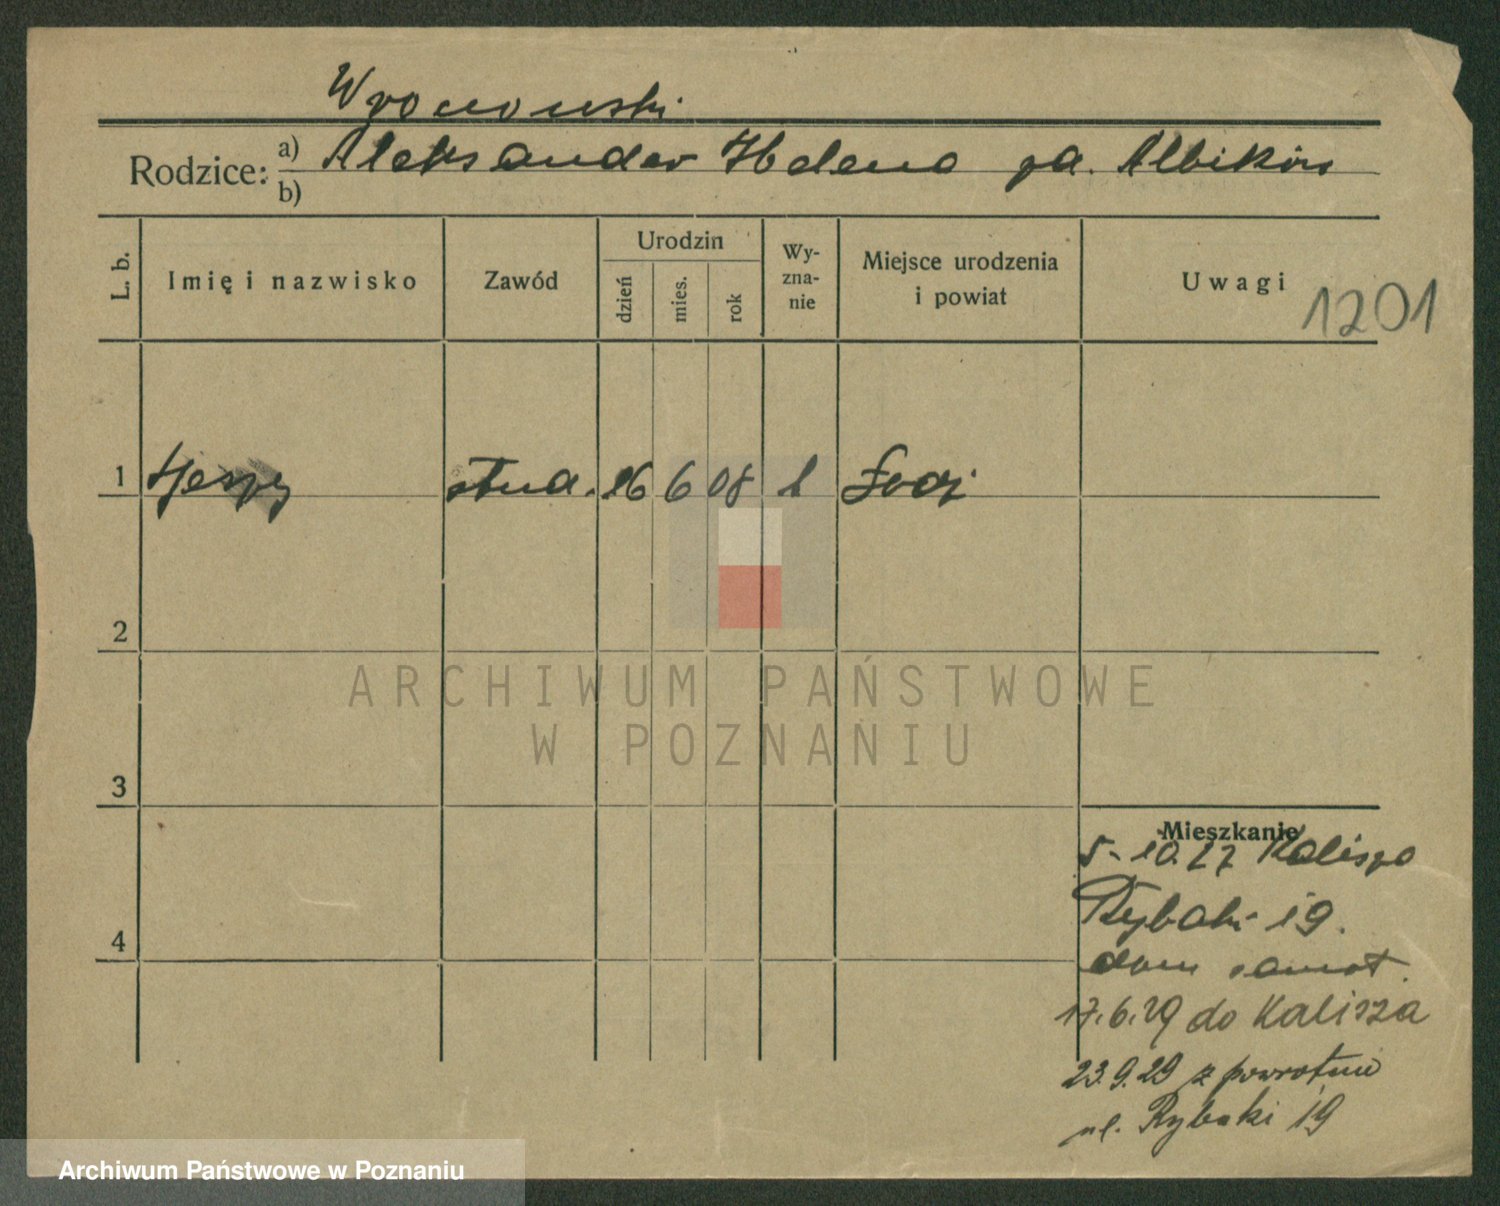 Wronowski
Rodzice: a) Aleksander Helena zd. Albików
b)
L. b.
Imię i nazwisko
Zawód
Urodzin
dzień
mies.
rok
Wy-
zna-
nie
Miejsce urodzenia
i powiat
Uwagi
1201
1 Jerzy stud. 16 6 08 Łodź
2
3
4
Mieszkanie
5.10.27 Kalisza
Rybaki 19.
dom samot.
17.6.29 do Kalisza
23.9.29 z powrotem
ul. Rybaki 19
ARCHIWUM PAŃSTWOWE
W POZNANIU
Archiwum Państwowe w Poznaniu